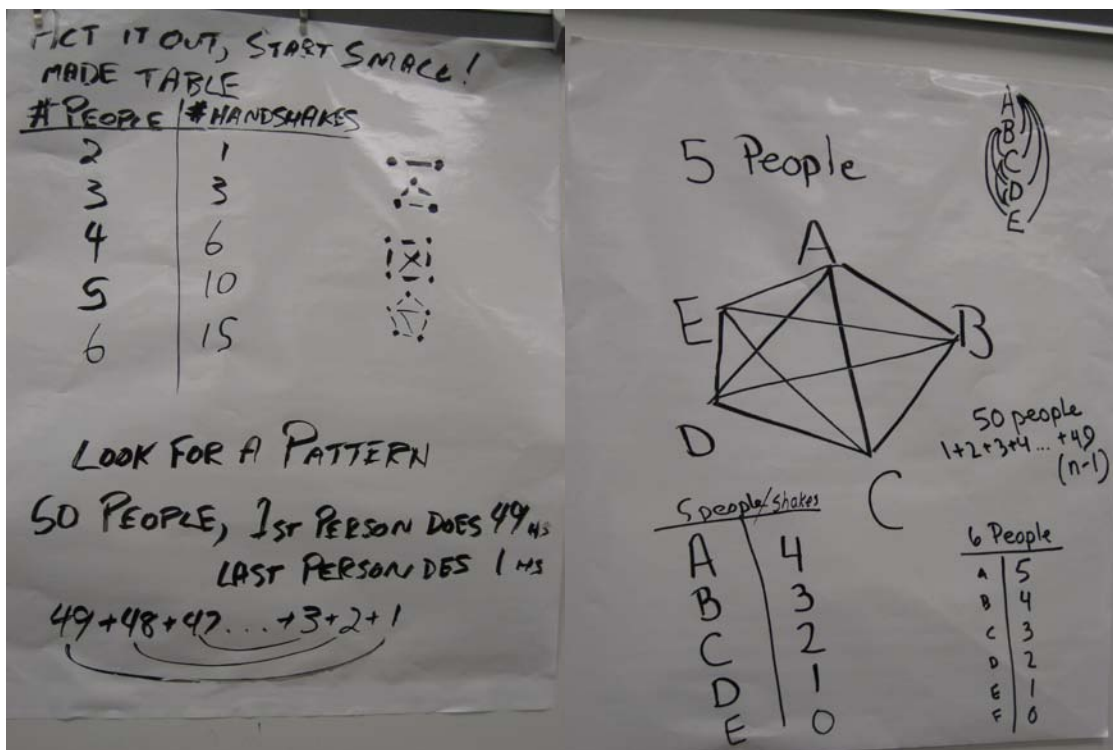 ACT IT OUT, START SMALL!
MADE TABLE
# PEOPLE | # HANDSHAKES
2 1
3 3
4 6
5 10
6 15
LOOK FOR A PATTERN
50 PEOPLE, 1ST PERSON DOES 49 HS
LAST PERSON DES 1 HS
49+48+47...+3+2+1
5 People
A
B
C
D
E
A
E
B
D
C
50 people
1+2+3+4... +49
(n-1)
5 people/shakes
A 4
B 3
C 2
D 1
E 0
6 People
A 5
B 4
C 3
D 2
E 1
F 0